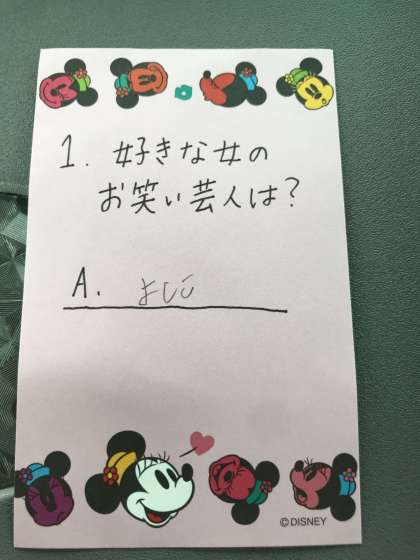 1. 好きな女の
お笑い芸人は?
A. よしこ
©DISNEY